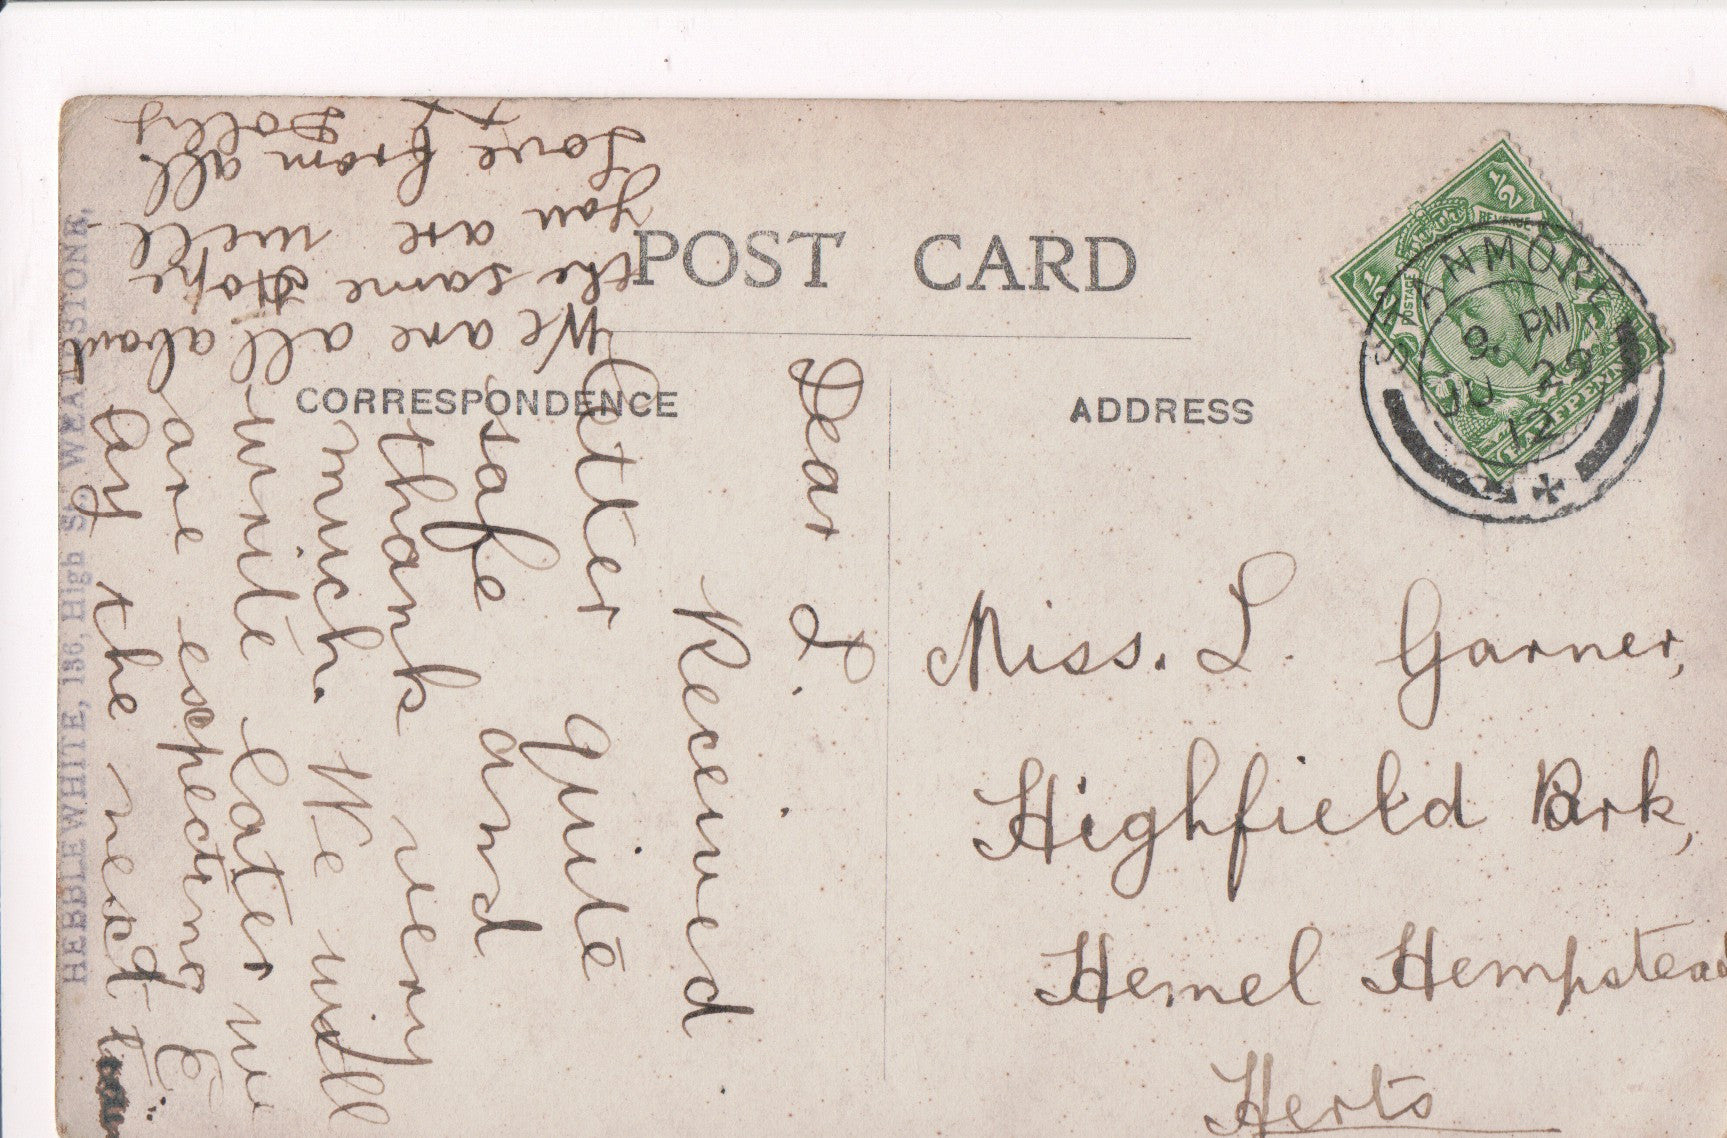 POST CARD
CORRESPONDENCE
ADDRESS
Dear L.
Received
letter quite
safe and
thank very
much. We will
write later we
are expecting E
by the next
We are all about
the same Hope
you are well
Love from all
Dolly
X
Miss. L. Garner,
Highfield Park,
Hemel Hempstead
Herts
STANMORE
9 PM
JU 29
12
1/2
1/2
POSTAGE
REVENUE
HALFPENNY
HEBBLEWHITE, 136, High St. WEALDSTONE,